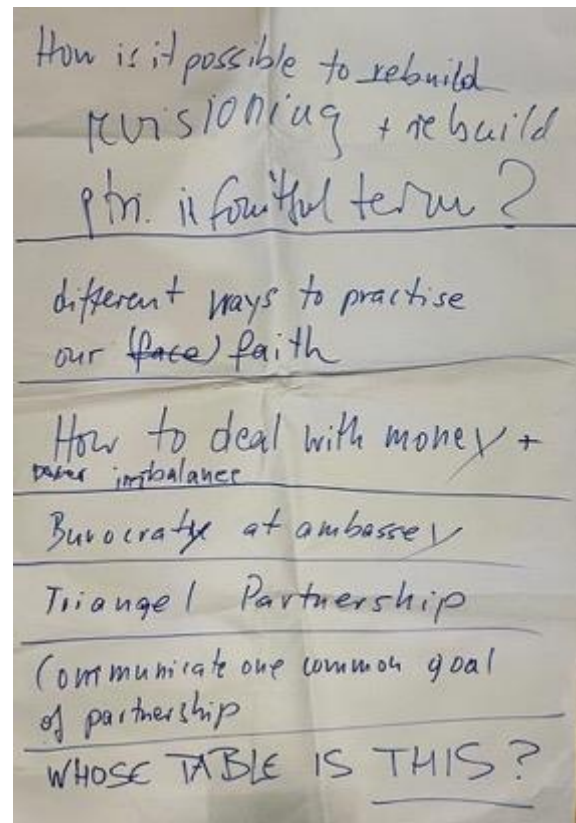 How is it possible to rebuild
revisioning + rebuild
ptn. in fruitful term?
different ways to practise
our (face) faith
How to deal with money +
power imbalance
Burocraty at ambassey
Triangel Partnership
Communicate one common goal
of partnership
WHOSE TABLE IS THIS?